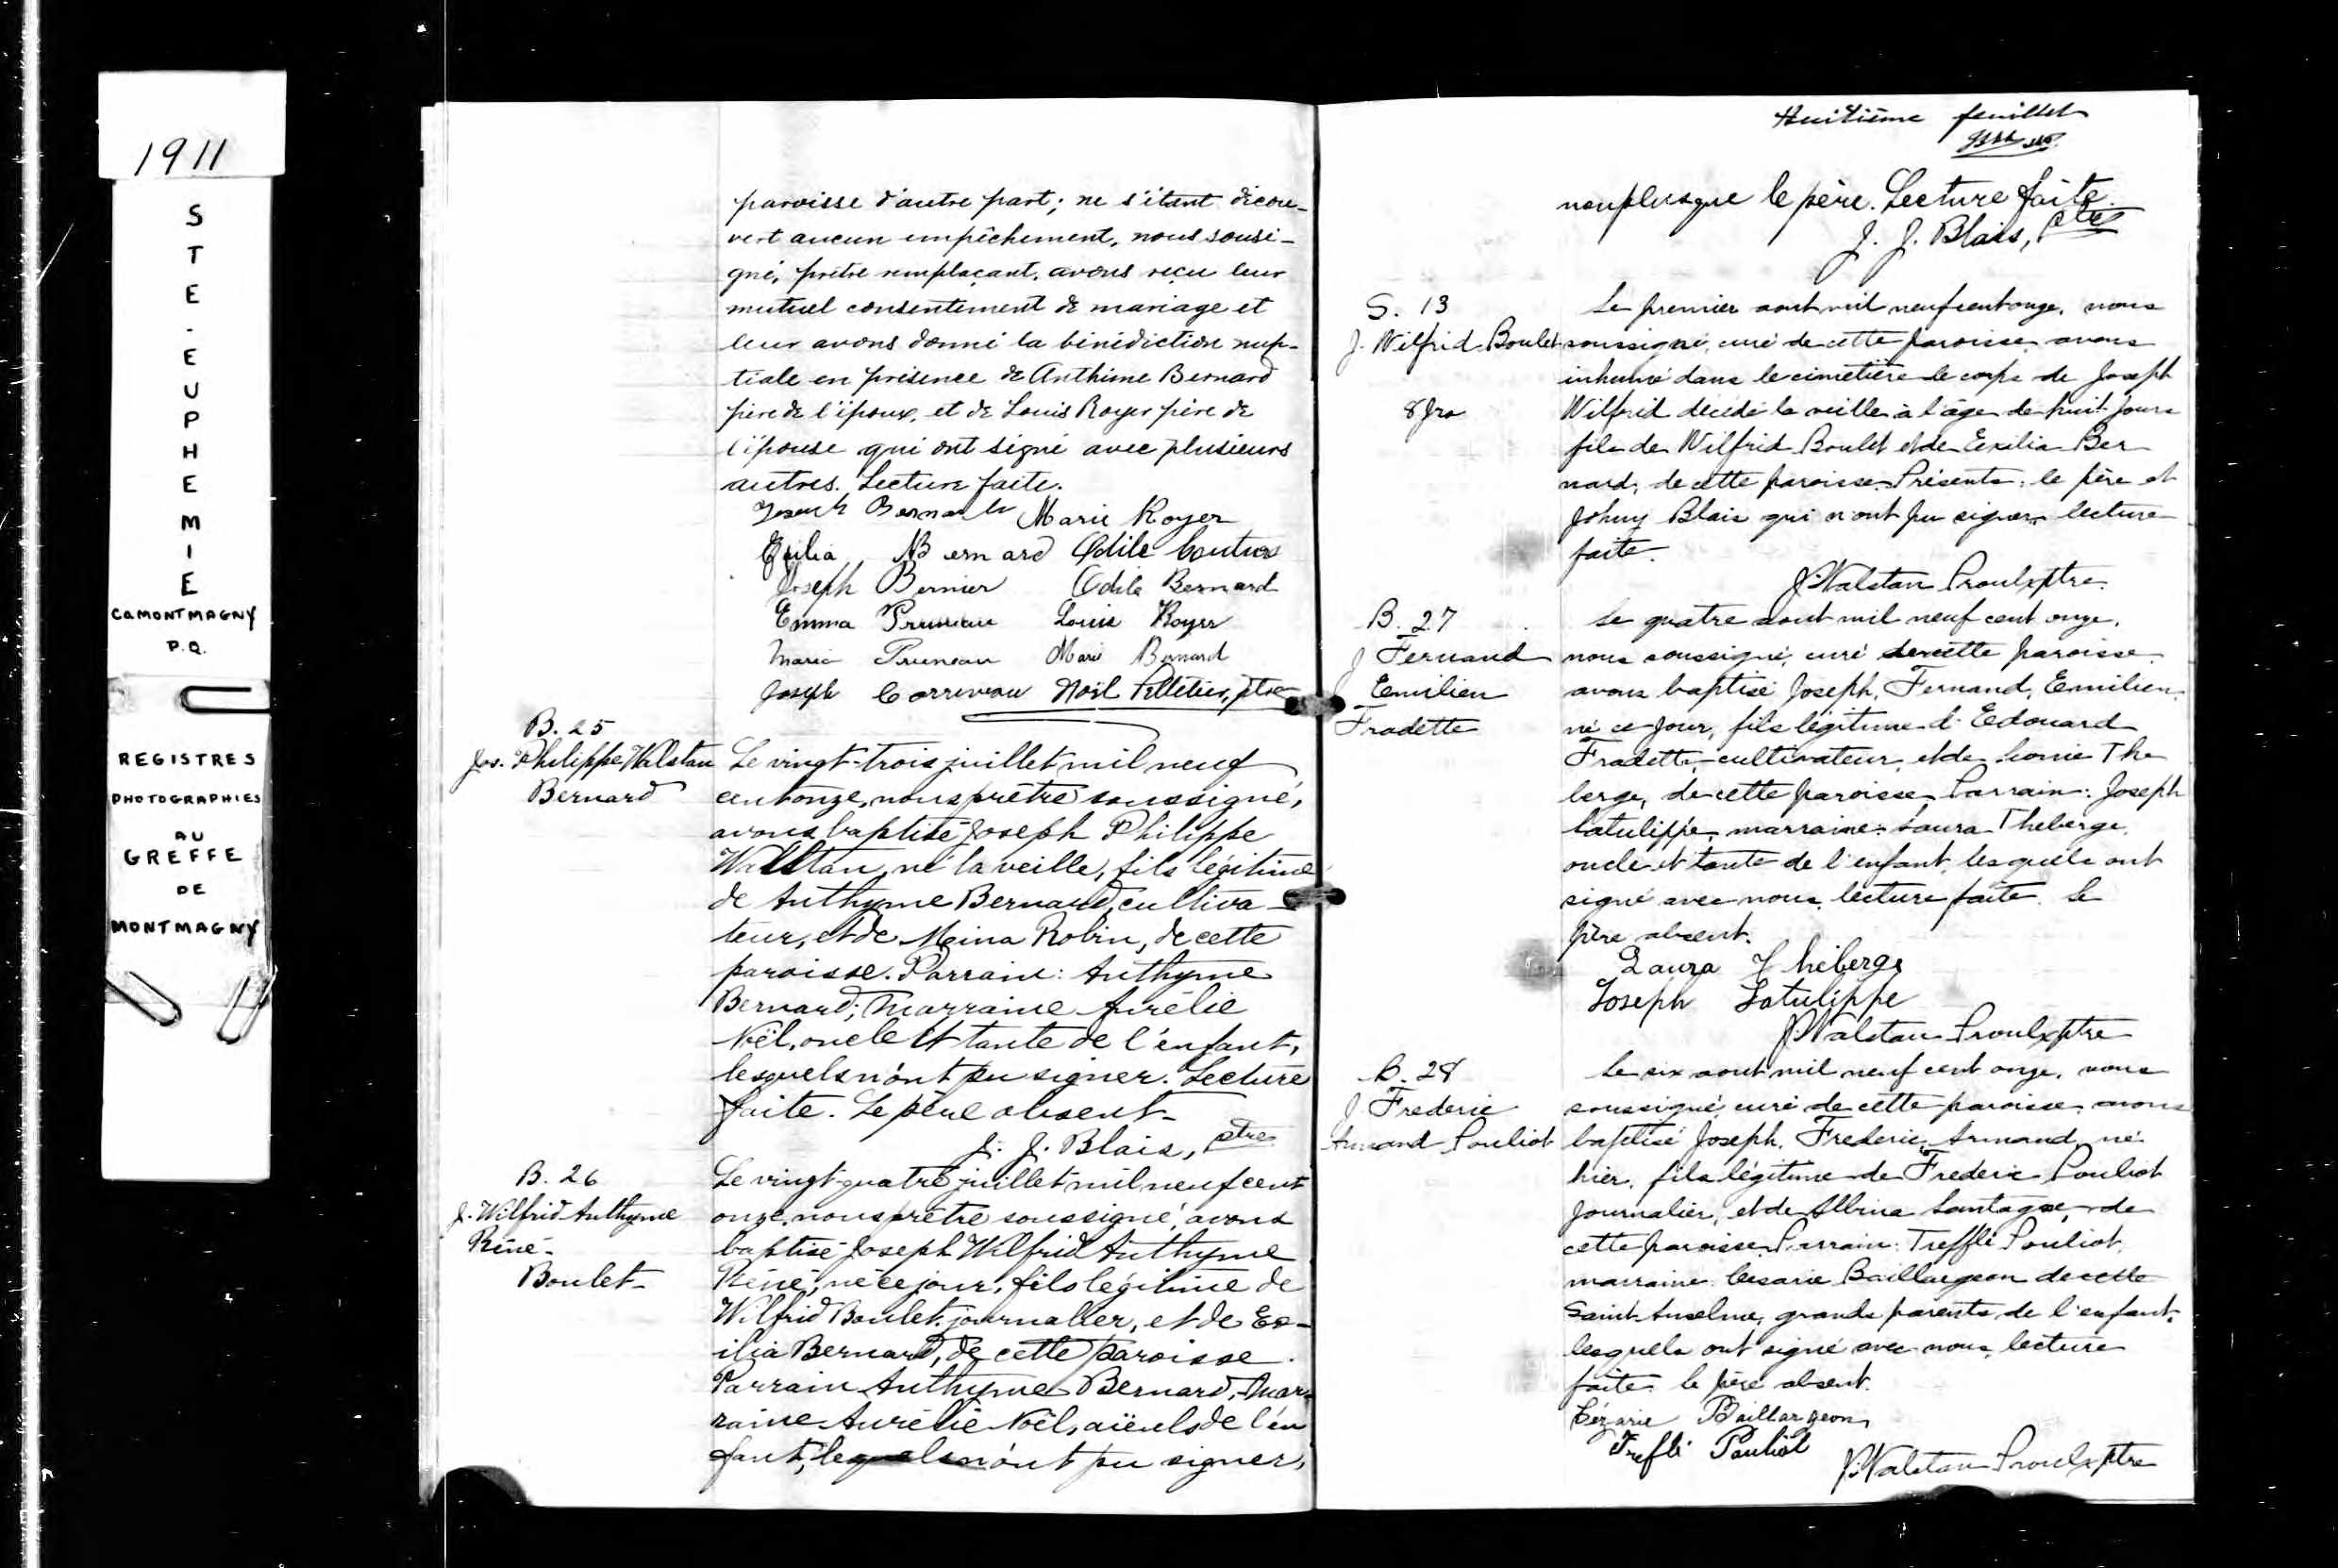 1911
STE. EUPHEMIE
Co MONTMAGNY
P.Q.
REGISTRES
PHOTOGRAPHIES
AU
GREFFE
DE
MONTMAGNY
paroisse d'autre part; ne s'étant décou-
vert aucun empêchement, nous sousi-
gné, prêtre remplaçant, avons reçu leur
mutuel consentement de mariage et
leur avons donné la bénédiction nup-
tiale en présence de Anthime Bernard
père de l'époux, et de Louis Royer père de
l'épouse qui ont signé avec plusieurs
autres. Lecture faite.
Joseph Bernard Marie Royer
Exilia Bernard Odile Couture
Joseph Bernier Odile Bernard
Emma Pruneau Louis Royer
Maria Pruneau Marie Bernard
Joseph Corriveau Noël Pelletier, ptre
B. 25
Jos. Philippe Walstan
Bernard
Le vingt-trois juillet mil neuf
cent onze, nous prêtre soussigné,
avons baptisé Joseph Philippe
Walstan, né la veille, fils légitime
de Anthyme Bernard, cultiva-
teur, et de Meina Robin, de cette
paroisse. Parrain: Anthyme
Bernard; Marraine Aurélie
Noël, oncle et tante de l'enfant,
lesquels n'ont pu signer. Lecture
faite. Le père absent.
J. J. Blais, ptre
B. 26
J. Wilfrid Anthyme
Réné-
Boulet-
Le vingt-quatre juillet mil neuf cent
onze, nous prêtre soussigné, avons
baptisé Joseph Wilfrid Anthyme
Réné, né ce jour, fils légitime de
Wilfrid Boulet, journalier, et de Ex-
ilia Bernard, de cette paroisse.
Parrain Anthyme Bernard, Mar-
raine Aurélie Noël, aïeuls de l'en
fant, lesquels n'ont pu signer,
Huitième feuillet
non plus que le père. Lecture faite.
J. J. Blais, ptre
S. 13
J. Wilfrid Boulet
8 jrs
Le premier aout mil neuf cent onze, nous
soussigné, curé de cette paroisse avons
inhumé dans le cimetière le corps de Joseph
Wilfrid décédé la veille à l'âge de huit jours
fils de Wilfrid Boulet et de Exilia Ber
nard, de cette paroisse. Présents: le père et
Johnny Blais qui n'ont pu signer. lecture
faite.
J. Walstan Proulx ptre.
B. 27
J Fernand
Emilien
Fradette
Le quatre aout mil neuf cent onze,
nous soussigné, curé de cette paroisse
avons baptisé Joseph, Fernand, Emilien,
né ce jour, fils légitime d'Edouard
Fradette, cultivateur, et de Léonie The
berge, de cette paroisse. Parrain: Joseph
Latulippe, marraine: Laura Theberge,
oncle et tante de l'enfant, lesquels ont
signé avec nous. lecture faite. Le
père absent.
Laura Théberge
Joseph Latulippe
J. Walstan Proulx ptre
B. 28
J. Frederic
Armand Pouliot
Le six aout mil neuf cent onze, nous
soussigné, curé de cette paroisse avons
baptisé Joseph, Frederic, Armand, né
hier, fils légitime de Frederic Pouliot
journalier, et de Albina Lantagne, de
cette paroisse. Parrain: Trefflé Pouliot,
marraine: Césarie Baillargeon de
Saint-Anselme, grands parents de l'enfant,
lesquels ont signé avec nous. lecture
faite. le père absent.
Cézarie Baillargeon
Trefflé Pouliot
J. Walstan Proulx ptre